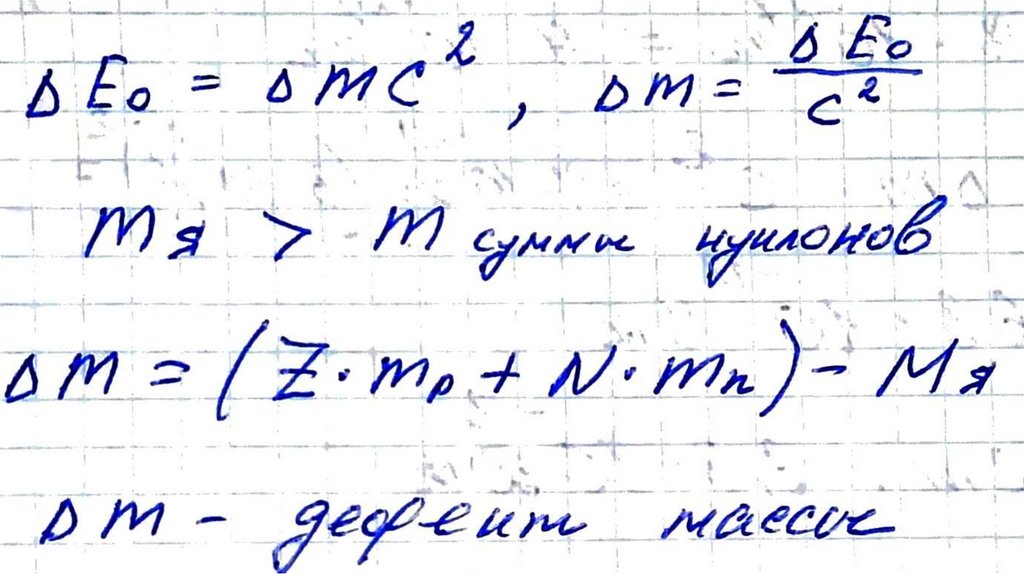 ΔE₀ = Δmc², Δm = ΔE₀/c²
mя > m суммы нуклонов
Δm = (Z·mp + N·mn) - Mя
Δm - дефект массы